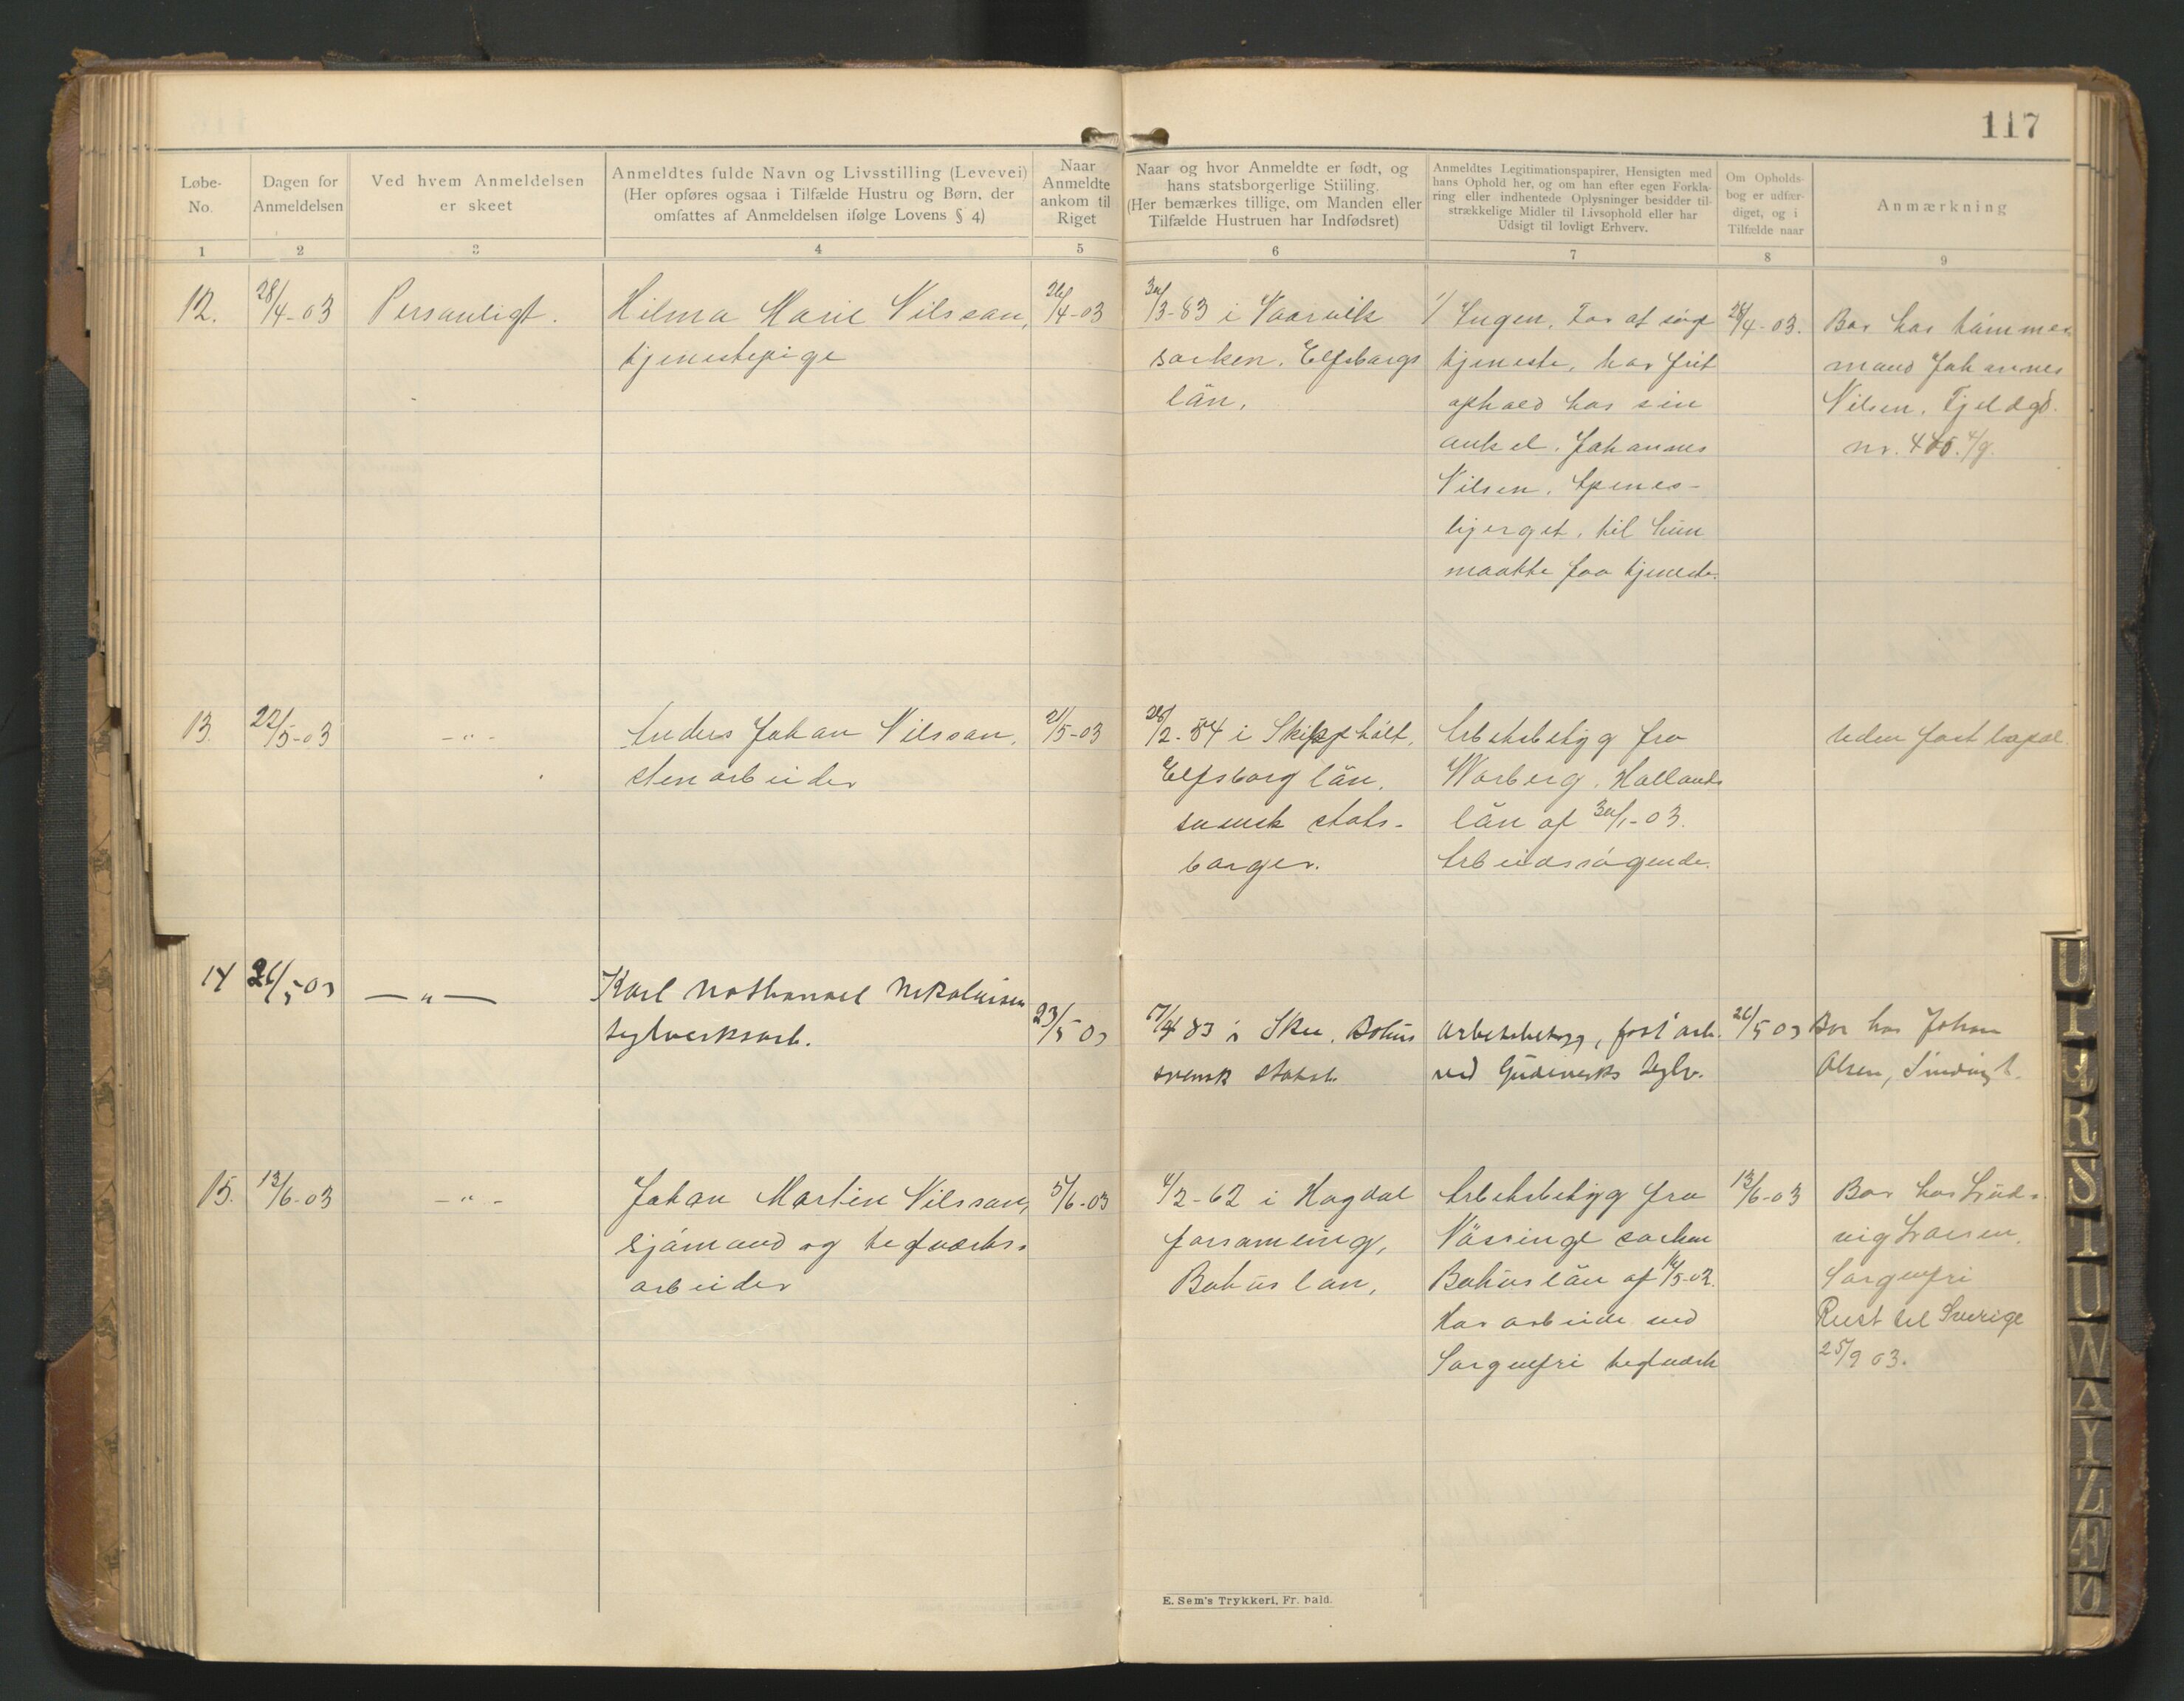 117
Løbe-
No.
Dagen for
Anmeldelsen
Ved hvem Anmeldelsen
er skeet
Anmeldtes fulde Navn og Livsstilling (Levevei)
(Her opføres ogsaa i Tilfælde Hustru og Børn, der
omfattes af Anmeldelsen ifølge Lovens § 4)
Naar
Anmeldte
ankom til
Riget
Naar og hvor Anmeldte er født, og
hans statsborgerlige Stiiling.
(Her bemærkes tillige, om Manden eller
Tilfælde Hustruen har Indfødsret)
Anmeldtes Legitimationspapirer, Hensigten med
hans Ophold her, og om han efter egen Forkla-
ring eller indhentede Oplysninger besidder til-
strækkelige Midler til Livsophold eller har
Udsigt til lovligt Erhverv.
Om Opholds-
bog er udfær-
diget, og i
Tilfælde naar
Anmærkning
1 2 3 4 5 6 7 8 9
12.
28/4-03
Personligt.
Hilma Marie Nilsson,
tjenestepige
26/4-03
30/3-83 i Vaarvik
socken. Elfsborgs
län.
1/ Ingen. For at søge
tjeneste, har frit
ophold hos sin
onkel. Johannes
Nilsen,
bjerget, til hun
maatte faa tjeneste.
28/4-03.
Bor hos tømmer
mand Johannes
Nilsen. Fjeldgd.
nr.
13.
22/5-03
- " -
Anders Johan Nilsson,
stenarbeider
21/5-03
28/2-84 i Skippholt,
Elfsborg län.
svensk stats-
borger.
Arbetsbetyg fra
Warberg. Hallands
län af 30/1-03.
Arbeidssøgende.
Uden fast bopæl.
14
26/5 03
— " —
Karl Nathanael Nikolaisen
teglverksarb.
23/5 03
17/4 83 i Skee, Bohus
svensk statsb.
Arbetsbetyg, fast arb.
ved Gudeverks teglv.
26/5 03
Bor hos Johan
Olsen,
15.
13/6-03
- " -
Johan Martin Nilsson,
sjømand og teglværks-
arbeider
5/6-03
4/2-62 i Hogdal
forsamling,
Bohus län.
Arbetsbetyg fra
Näsinge socken
Bohuslän af 16/5-02.
Har arbeide ved
Sorgenfri teglværk
13/6-03
Bor hos Lud-
vig Larsen.
Sorgenfri
Reist til Sverige
25/9 03.
E. Sem's Trykkeri, Fr. hald.
U
T
R
S
T
U
W
A
Y
Z
Æ
Ø